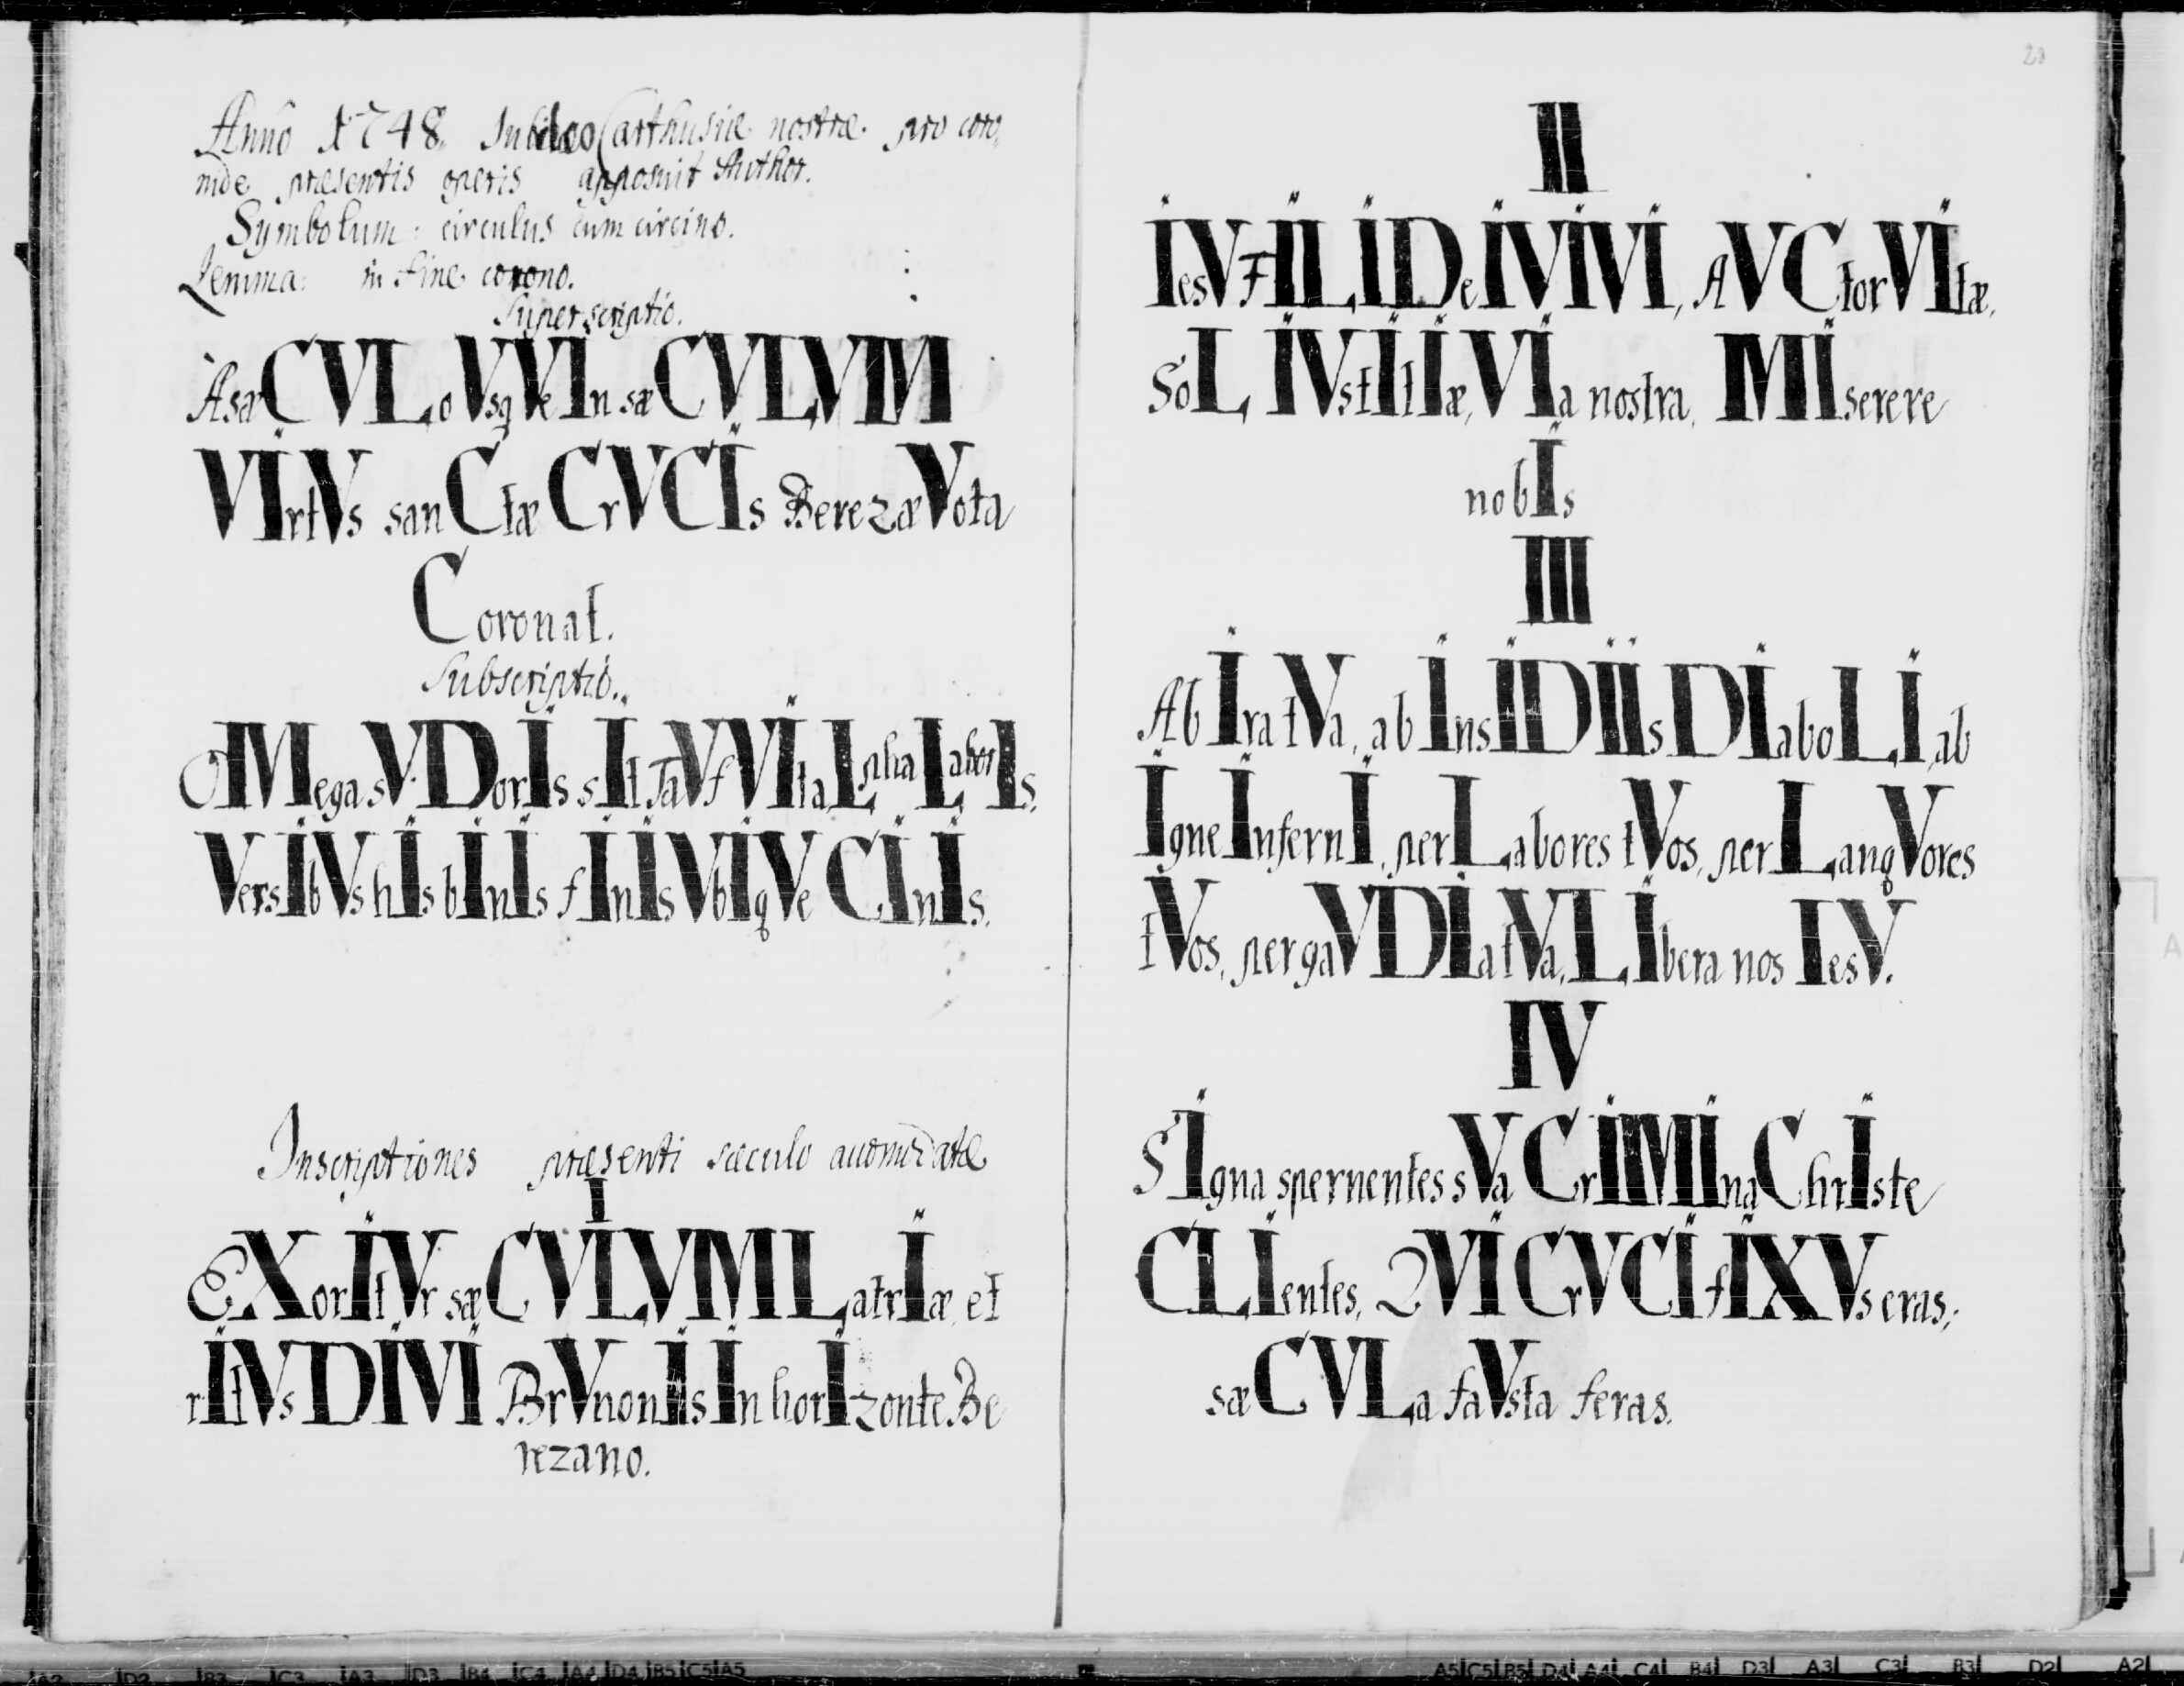 Anno 1748. Jubilæo Carthusiæ nostræ pro coro,
nide præsentis operis apposuit Author.
Symbolum: circulus cum circino.
Lemma: in fine corono.
Superscriptio.
A sæCVLo VsqVe In sæCVLVM
VIrtVs sanCtæ CrVCIs Berezæ Vota
Coronat.
Subscriptio.
OMega sVDorIs sIt TaV f VIta LaborIs.
VersIbVs hIs bInIs fInIs VbIqVe CInIs.
Inscriptiones præsenti sæculo accomodatæ
I
EXorItVr sæCVLVM LatrIæ, et
rItVs DIVI BrVnonIs In horIzonte Be
rezano.
28
II
IesV FILI DeI VIVI, AVCtor VItæ,
SoL IVstItIæ, VIa nostra, MIserere
nobIs
III
Ab Ira tVa, ab InsIDIIs DIaboLI, ab
Igne InfernI, per Labores tVos, per LangVores
tVos, per gaVDIa tVa, LIbera nos IesV.
IV
SIgna spernentes sVa CrIMIna ChrIste
CLIentes, QVI CrVCIfIXVs eras;
sæCVLa faVsta feras.
A2 D2 B3 C3 A3 D3 B4 C4 A4 D4 B5 C5 A5
A5 C5 B5 D4 A4 C4 B4 D3 A3 C3 B3 D2 A2